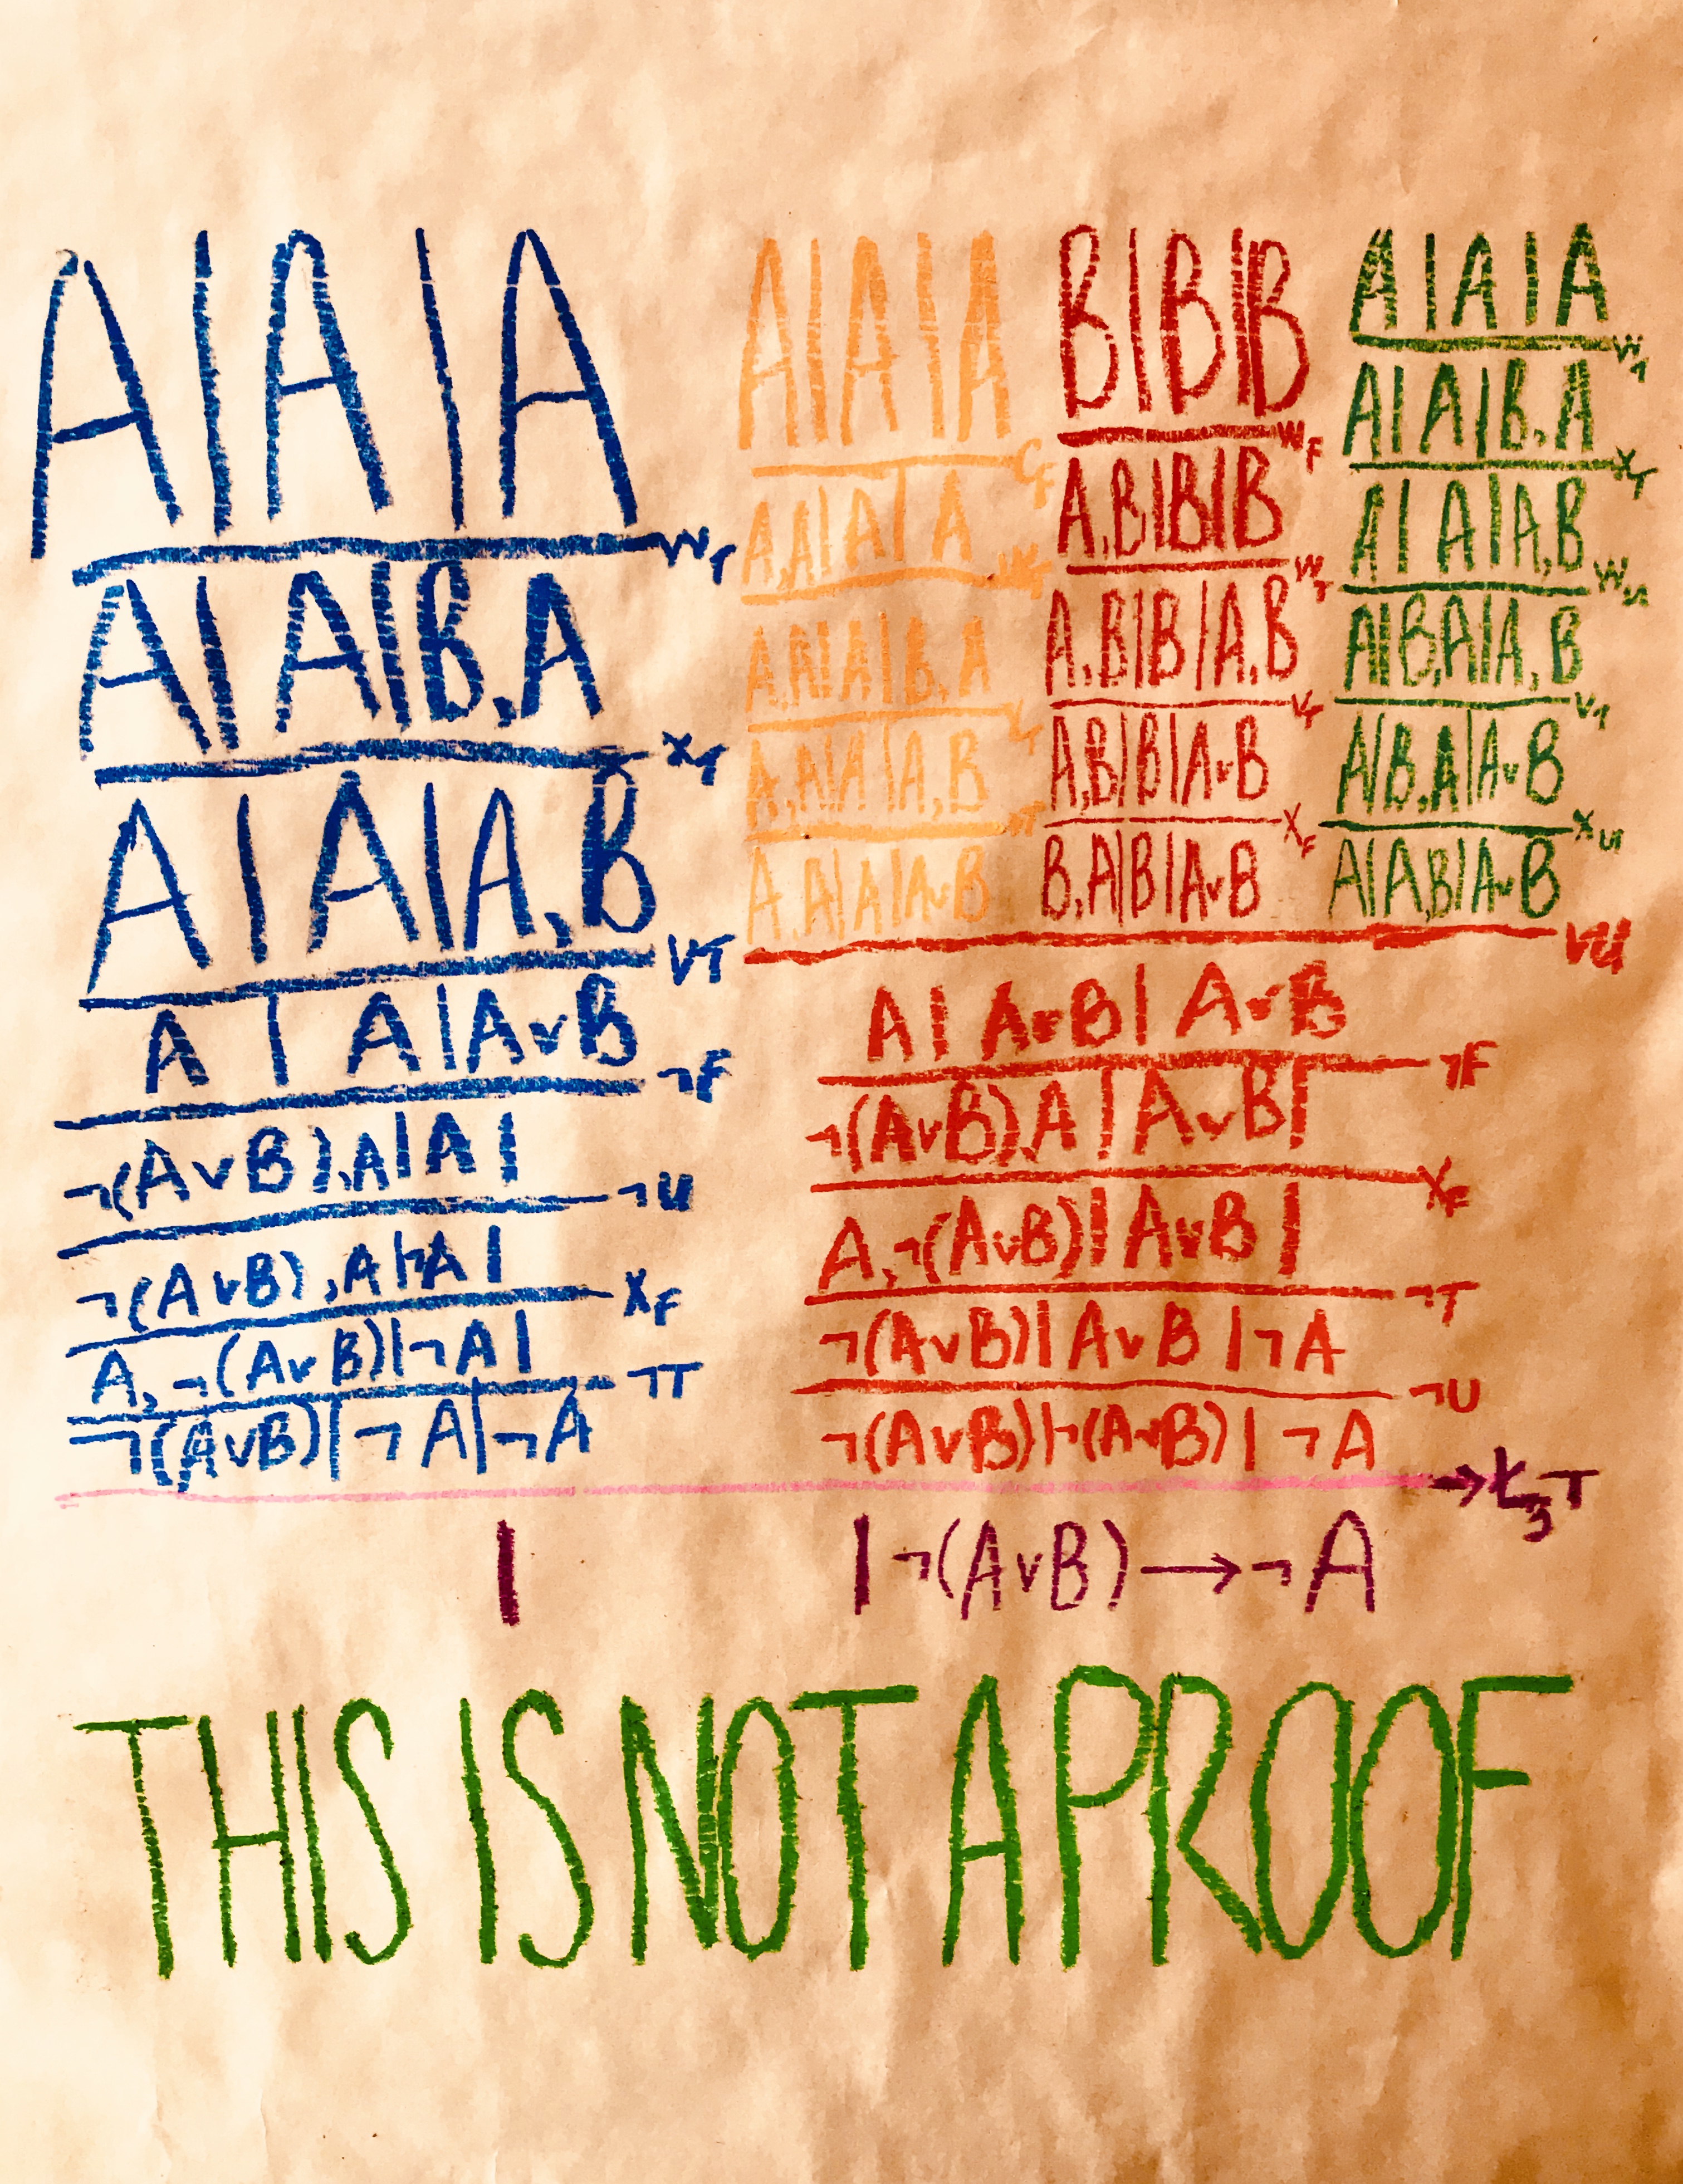 A | A | A
W_T
A | A | B, A
X_T
A | A | A, B
∨T
A | A | A∨B
¬F
¬(A∨B), A | A |
¬U
¬(A∨B), A | ¬A |
X_F
A, ¬(A∨B) | ¬A |
¬T
¬(A∨B) | ¬A | ¬A
A | A | A
C_F
A, A | A | A
A, A | A | B, A
A, A | A | A, B
A, A | A | A∨B
B | B | B
W_F
A, B | B | B
W_T
A, B | B | A, B
∨_T
A, B | B | A∨B
X_F
B, A | B | A∨B
A | A | A
W_T
A | A | B, A
X_T
A | A | A, B
W_U
A | B, A | A, B
∨_T
A | B, A | A∨B
X_U
A | A, B | A∨B
∨U
A | A∨B | A∨B
¬F
¬(A∨B), A | A∨B |
X_F
A, ¬(A∨B) | A∨B |
¬T
¬(A∨B) | A∨B | ¬A
¬U
¬(A∨B) | ¬(A∨B) | ¬A
→Ł₃T
| | ¬(A∨B) → ¬A
THIS IS NOT A PROOF